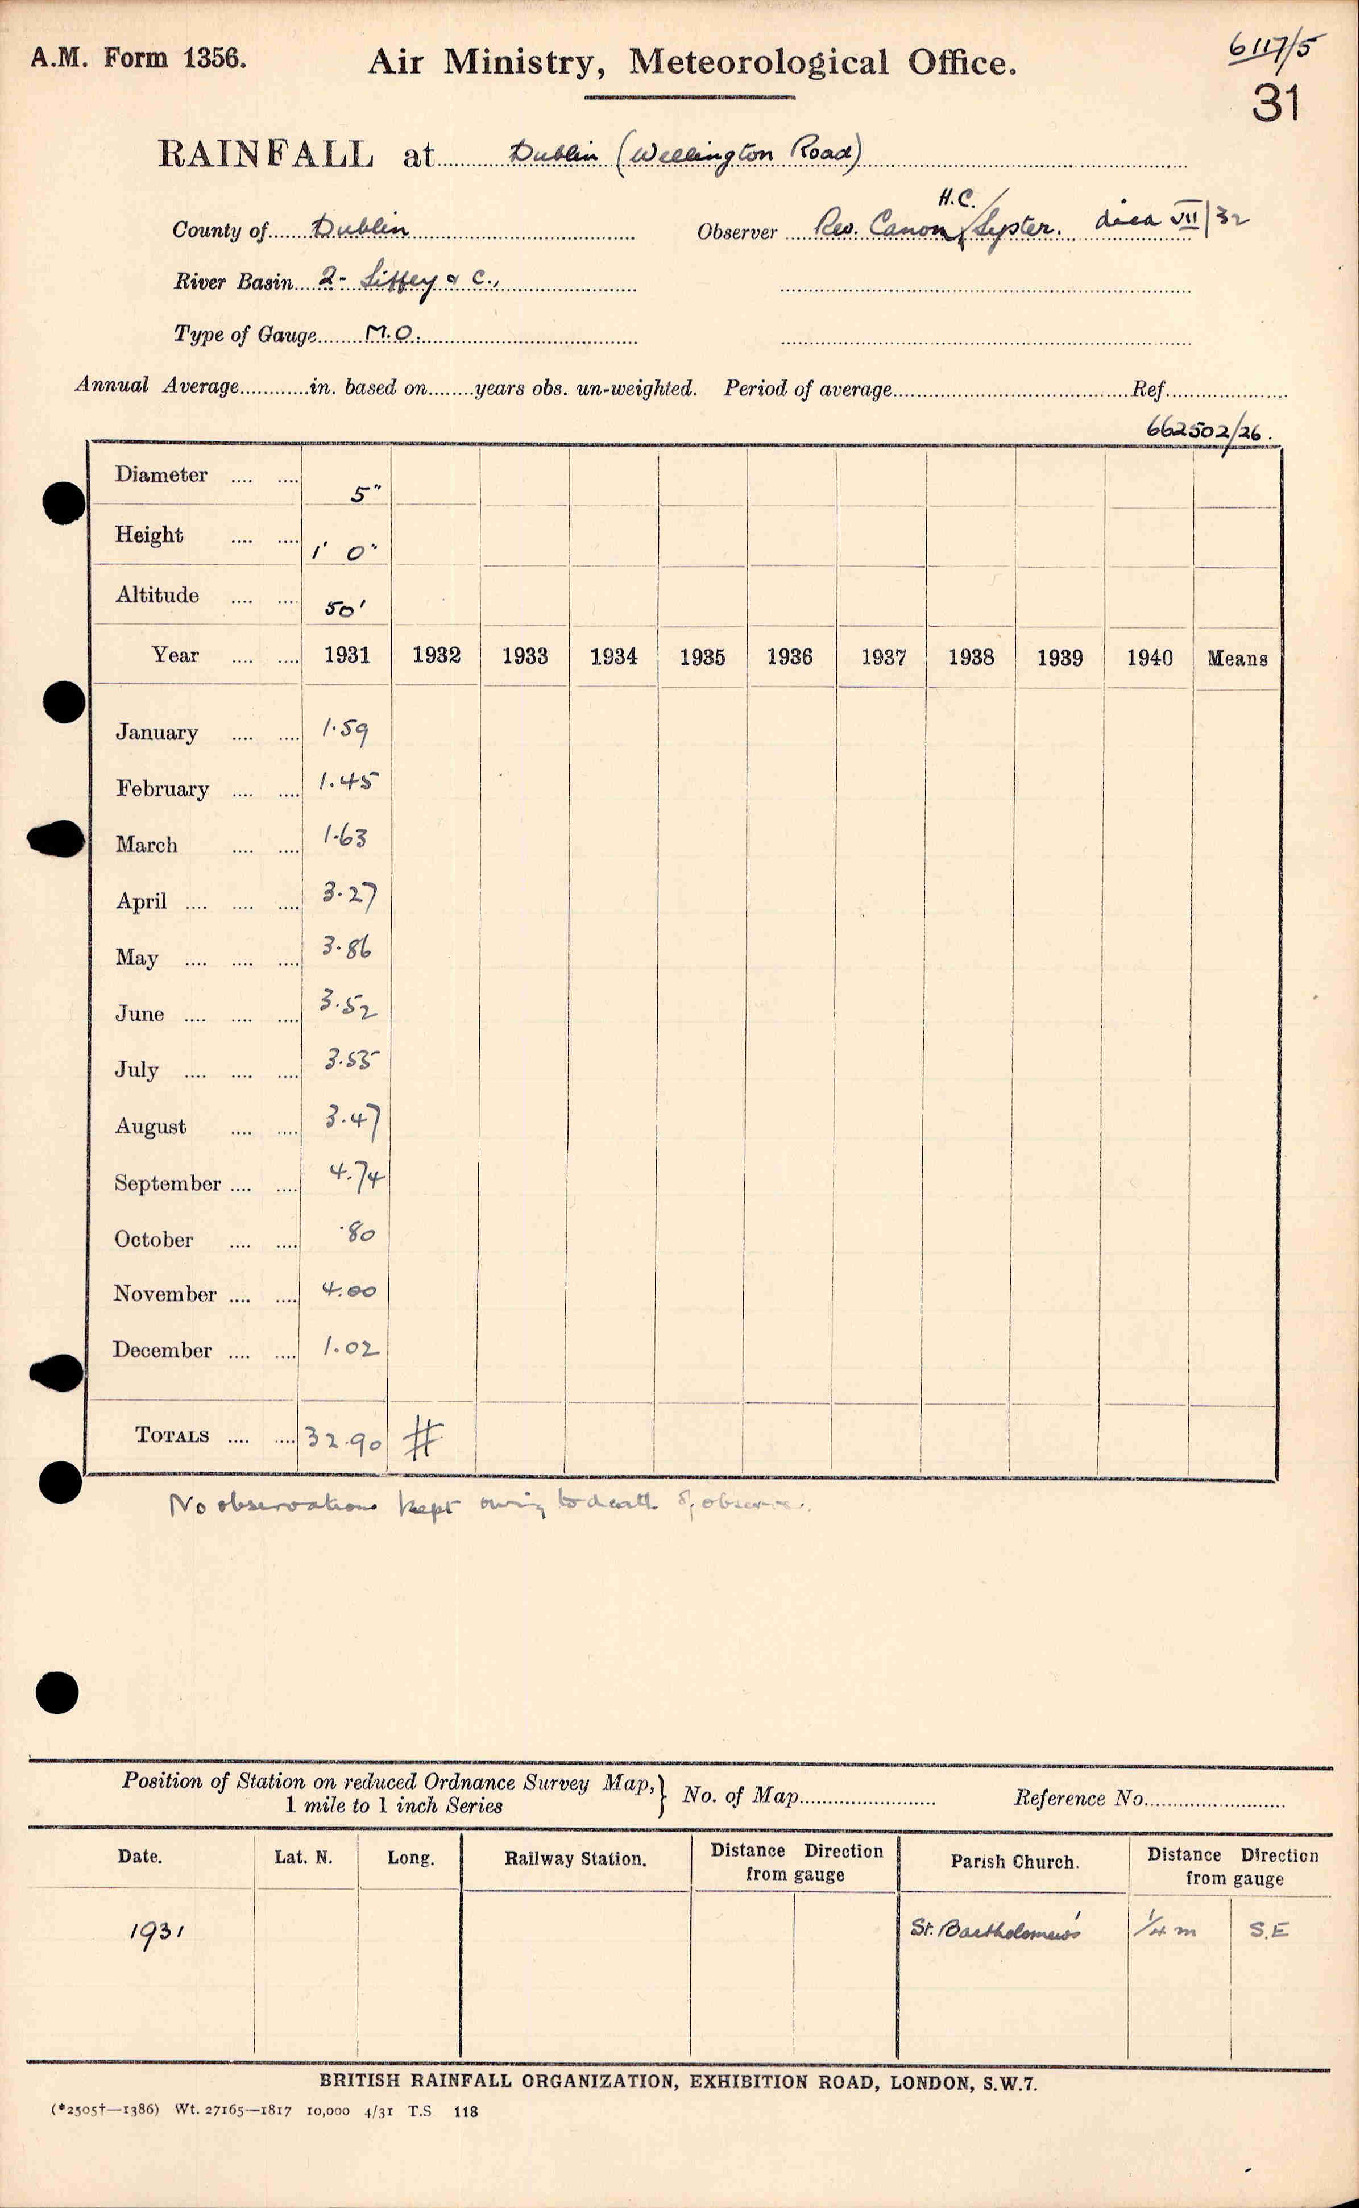 A.M. Form 1356.
Air Ministry, Meteorological Office.
6117/5
31
RAINFALL at Dublin (Wellington Road)
County of Dublin
Observer Rev. Canon H.C. Lyster. died VII/32
River Basin 2- Liffey & C.,
Type of Gauge M.O.
Annual Average............in. based on........years obs. un-weighted. Period of average.......... Ref..........
662502/26.
Diameter .... .... 5"
Height .... .... 1' 0"
Altitude .... .... 50'
Year .... .... 1931 1932 1933 1934 1935 1936 1937 1938 1939 1940 Means
January .... .... 1.59
February .... .... 1.45
March .... .... 1.63
April .... .... .... 3.27
May .... .... .... 3.86
June .... .... .... 3.52
July .... .... .... 3.55
August .... .... 3.47
September .... .... 4.74
October .... .... .80
November .... .... 4.00
December .... .... 1.02
TOTALS .... .... 32.90 #
No observations kept owing to death of observer.
Position of Station on reduced Ordnance Survey Map, } No. of Map.......... Reference No..........
1 mile to 1 inch Series
Date. Lat. N. Long. Railway Station. Distance Direction from gauge Parish Church. Distance Direction from gauge
1931 St. Bartholomew's 1/4 m S.E
BRITISH RAINFALL ORGANIZATION, EXHIBITION ROAD, LONDON, S.W.7.
(*2505†—1386) Wt. 27165—1817 10,000 4/31 T.S 118